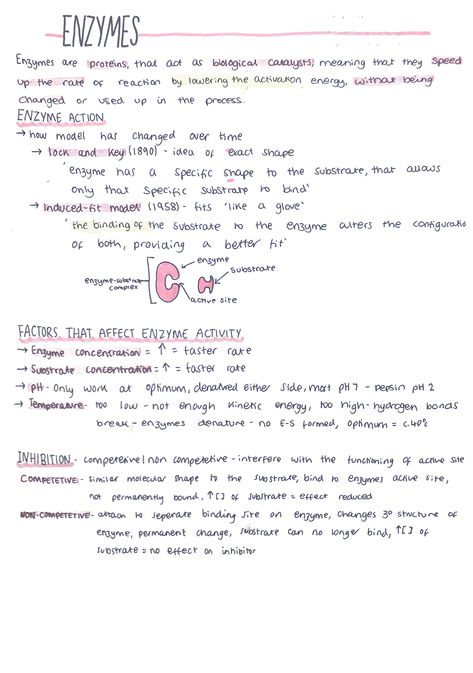 ENZYMES
Enzymes are proteins, that act as biological catalysts, meaning that they speed
up the rate of reaction by lowering the activation energy, without being
changed or used up in the process.
ENZYME ACTION
→ how model has changed over time
→ lock and key (1890) - idea of exact shape
'enzyme has a specific shape to the substrate, that allows
only that specific substrate to bind'
→ Induced-fit model (1958) - fits 'like a glove'
'the binding of the substrate to the enzyme alters the configuration
of both, providing a better fit'
enzyme
substrate
enzyme-substrate
complex
active site
FACTORS THAT AFFECT ENZYME ACTIVITY
→ Enzyme concentration = ↑ = faster rate
→ Substrate concentration = ↑ = faster rate
→ pH - only work at optimum, denatured either side, most pH 7 - pepsin pH 2
→ Temperature - too low - not enough kinetic energy, too high - hydrogen bonds
break - enzymes denature - no E-S formed, optimum = c.40°
INHIBITION - competetive | non competetive - interfere with the functioning of active site
COMPETETIVE - similar molecular shape to the substrate, bind to enzymes active site,
not permanently bound, ↑[] of substrate = effect reduced
NON-COMPETETIVE - attach to seperate binding site on enzyme, changes 3° structure of
enzyme, permanent change, substrate can no longer bind, ↑[] of
substrate = no effect on inhibitor